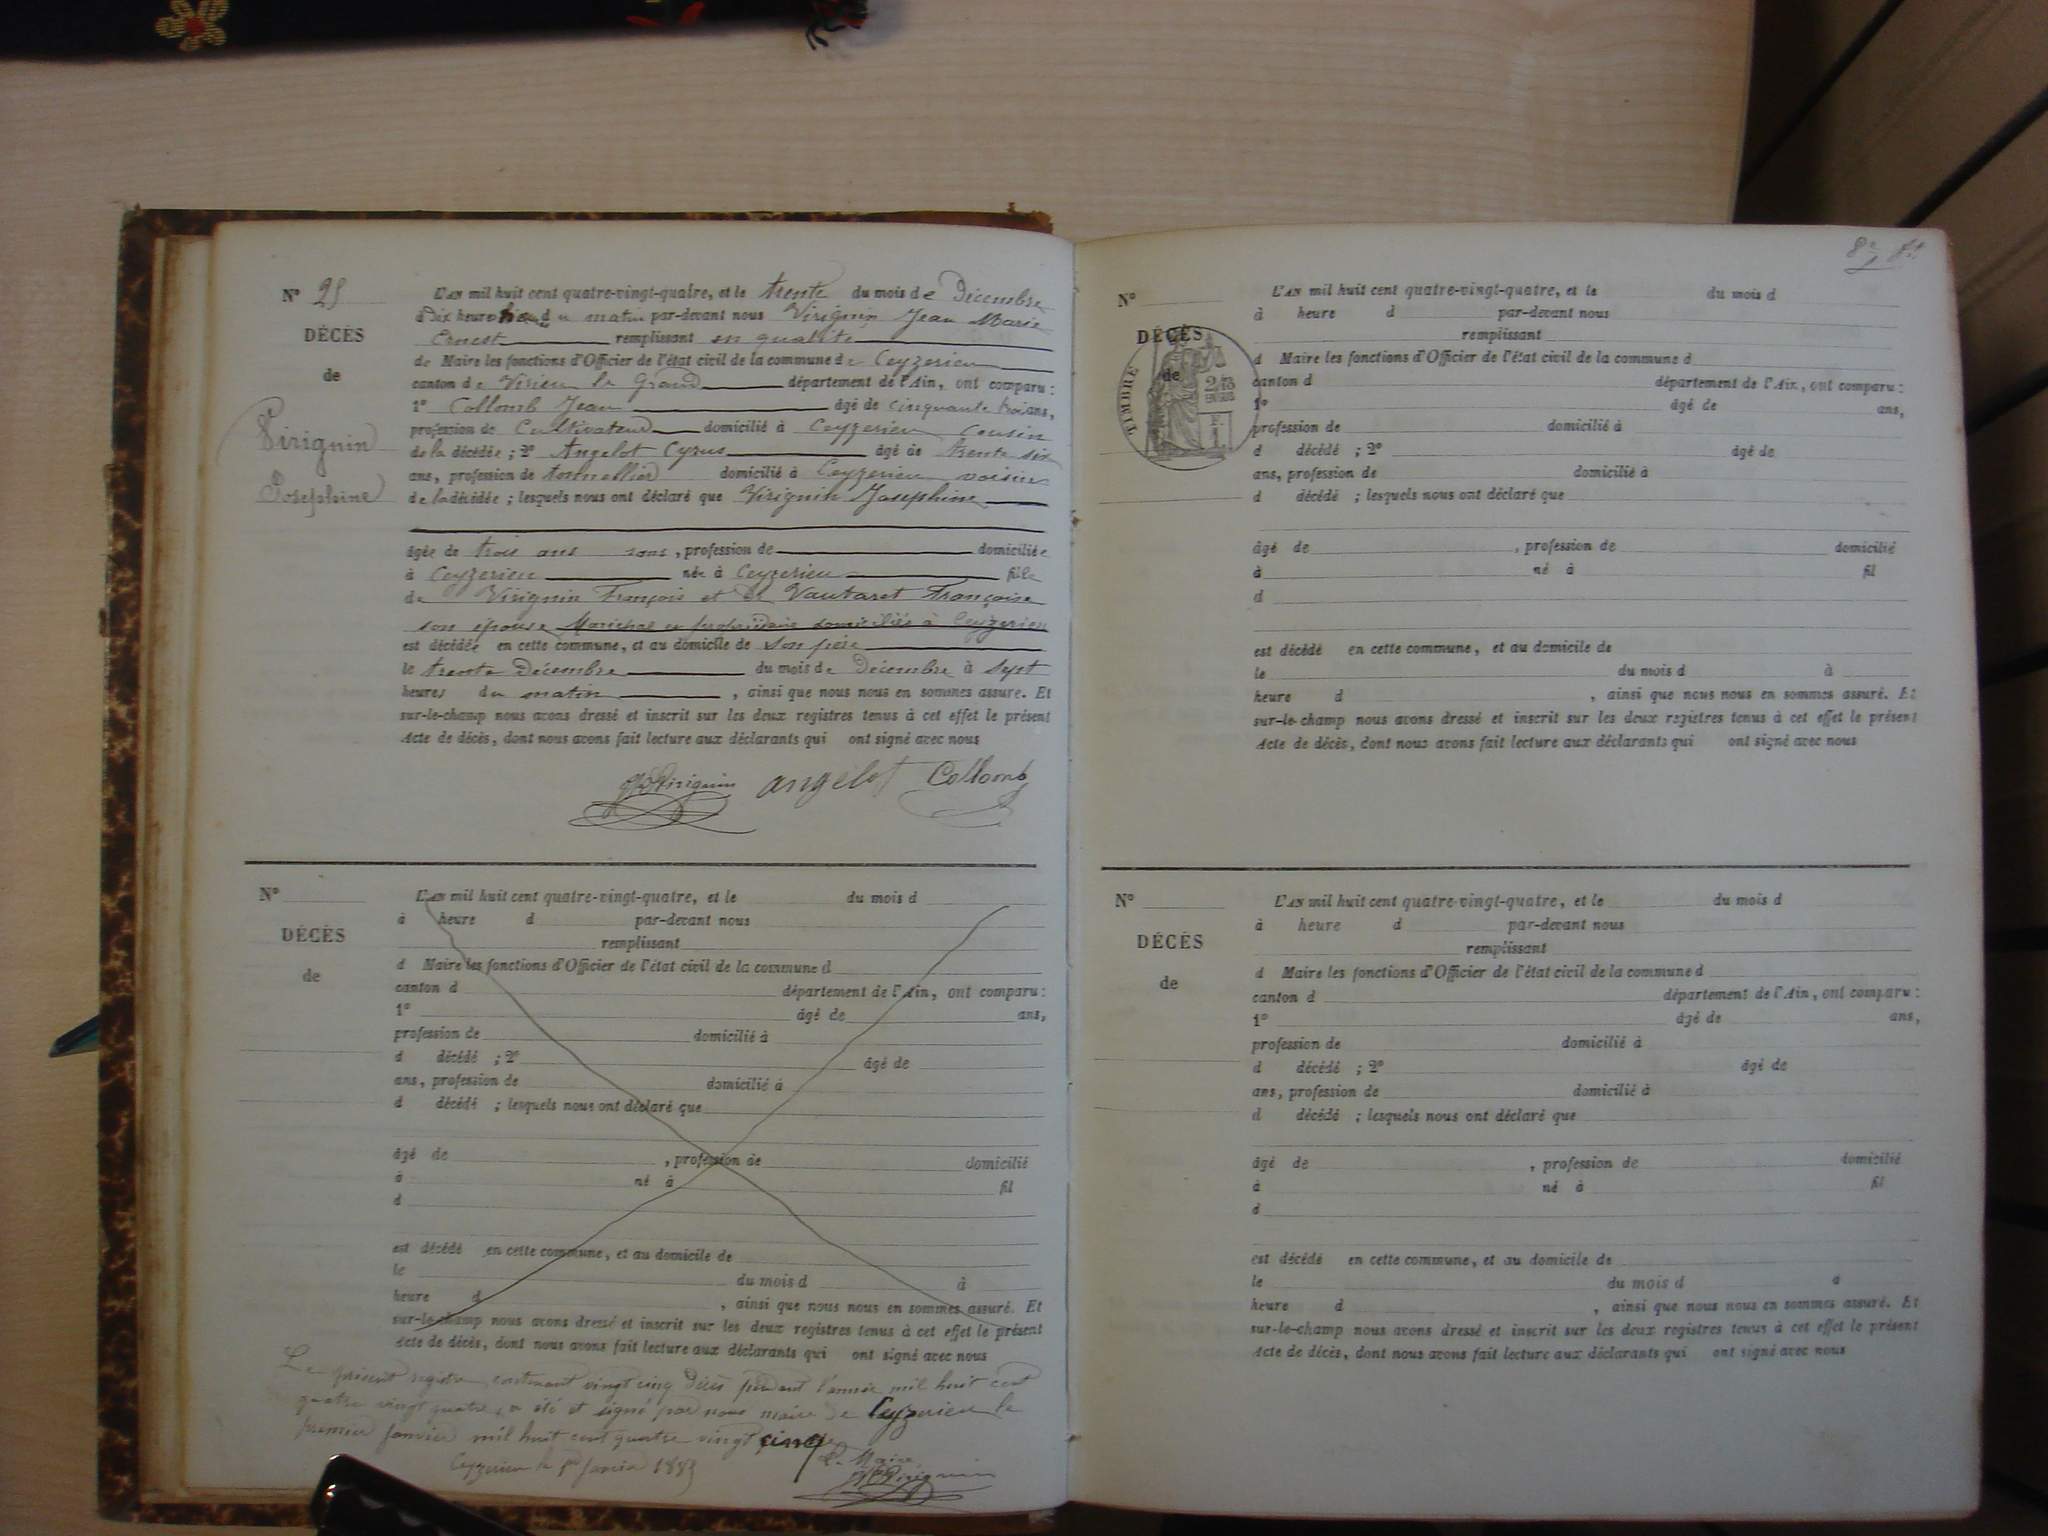 N° 25
DÉCÈS
de
Virignin
Josephine
L'AN mil huit cent quatre-vingt-quatre, et le trente du mois de Décembre
à Dix heures du matin par-devant nous Virignin Jean Marie
Ernest remplissant en qualité
de Maire les fonctions d'Officier de l'état civil de la commune de Ceyzerieu
canton de Virieu le Grand département de l'Ain, ont comparu :
1° Collomb Jean âgé de cinquante trois ans,
profession de Cultivateur domicilié à Ceyzerieu cousin
de la décédée ; 2° Angelot Cyrus âgé de trente six
ans, profession de tonnellier domicilié à Ceyzerieu voisin
de la décédée ; lesquels nous ont déclaré que Virignin Josephine
âgée de trois ans sans, profession de domiciliée
à Ceyzerieu née à Ceyzerieu fille
de Virignin François et de Vautaret Françoise
son épouse Maréchal et propriétaire domiciliés à Ceyzerieu
est décédée en cette commune, et au domicile de son père
le trente Décembre du mois de Décembre à Sept
heures du matin, ainsi que nous nous en sommes assuré. Et
sur-le-champ nous avons dressé et inscrit sur les deux registres tenus à cet effet le présent
Acte de décès, dont nous avons fait lecture aux déclarants qui ont signé avec nous
Virignin angelot Collomb
N°
DÉCÈS
de
L'AN mil huit cent quatre-vingt-quatre, et le du mois d
à heure d par-devant nous
remplissant
d Maire les fonctions d'Officier de l'état civil de la commune d
canton d département de l'Ain, ont comparu :
1° âgé de ans,
profession de domicilié à
d décédé ; 2° âgé de
ans, profession de domicilié à
d décédé ; lesquels nous ont déclaré que
âgé de , profession de domicilié
à né à fil
d
est décédé en cette commune, et au domicile de
le du mois d à
heure d , ainsi que nous nous en sommes assuré. Et
sur-le-champ nous avons dressé et inscrit sur les deux registres tenus à cet effet le présent
Acte de décès, dont nous avons fait lecture aux déclarants qui ont signé avec nous
Le présent registre contenant vingt cinq Décès pendant l'année mil huit cent
quatre vingt quatre, a été et signé par nous maire de Ceyzerieu le
premier Janvier mil huit cent quatre vingt cinq
Le Maire
Ceyzerieu le 1er Janvier 1885
Virignin
N°
DÉCÈS
de
TIMBRE
L'AN mil huit cent quatre-vingt-quatre, et le du mois d
à heure d par-devant nous
remplissant
d Maire les fonctions d'Officier de l'état civil de la commune d
canton d département de l'Ain, ont comparu :
1° âgé de ans,
profession de domicilié à
d décédé ; 2° âgé de
ans, profession de domicilié à
d décédé ; lesquels nous ont déclaré que
âgé de , profession de domicilié
à né à fil
d
est décédé en cette commune, et au domicile de
le du mois d à
heure d , ainsi que nous nous en sommes assuré. Et
sur-le-champ nous avons dressé et inscrit sur les deux registres tenus à cet effet le présent
Acte de décès, dont nous avons fait lecture aux déclarants qui ont signé avec nous
N°
DÉCÈS
de
L'AN mil huit cent quatre-vingt-quatre, et le du mois d
à heure d par-devant nous
remplissant
d Maire les fonctions d'Officier de l'état civil de la commune d
canton d département de l'Ain, ont comparu :
1° âgé de ans,
profession de domicilié à
d décédé ; 2° âgé de
ans, profession de domicilié à
d décédé ; lesquels nous ont déclaré que
âgé de , profession de domicilié
à né à fil
d
est décédé en cette commune, et au domicile de
le du mois d à
heure d , ainsi que nous nous en sommes assuré. Et
sur-le-champ nous avons dressé et inscrit sur les deux registres tenus à cet effet le présent
Acte de décès, dont nous avons fait lecture aux déclarants qui ont signé avec nous